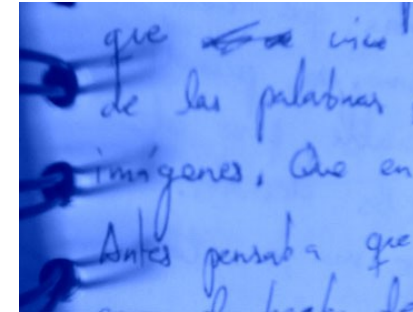 que vive
de las palabras
imágenes. Que en
Antes pensaba que